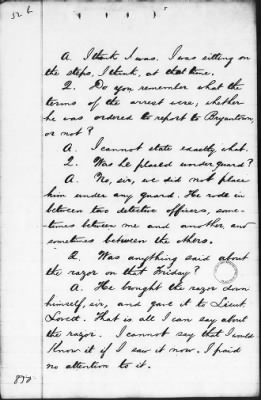 52 b
A. I think I was. I was sitting on
the steps, I think, at that time.
Q. Do you remember what the
terms of the arrest were, whether
he was ordered to report to Bryantown,
or not?
A. I cannot state exactly what.
Q. Was he placed under guard?
A. No, sir, we did not place
him under any guard. He rode in
between two detective officers, some-
times between me and another and
sometimes between the others.
Q. Was anything said about
the razor on that Friday?
A. He brought the razor down
himself, sir, and gave it to Lieut.
Lovett. That is all I can say about
the razor. I cannot say that I would
know it if I saw it now. I paid
no attention to it.